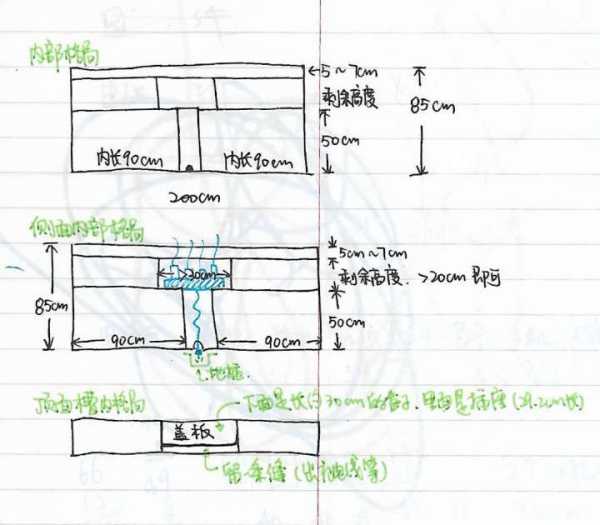 内部格局
5~7cm
剩余高度
85cm
50cm
内长90cm
内长90cm
200cm
侧面内部格局
>20cm
5cm~7cm
剩余高度.>20cm即可
85cm
50cm
90cm
90cm
地插
顶面槽内格局
盖板
下面是长约30cm的盒子.里面是插座(29.2cm长)
留条缝(出充电线等)